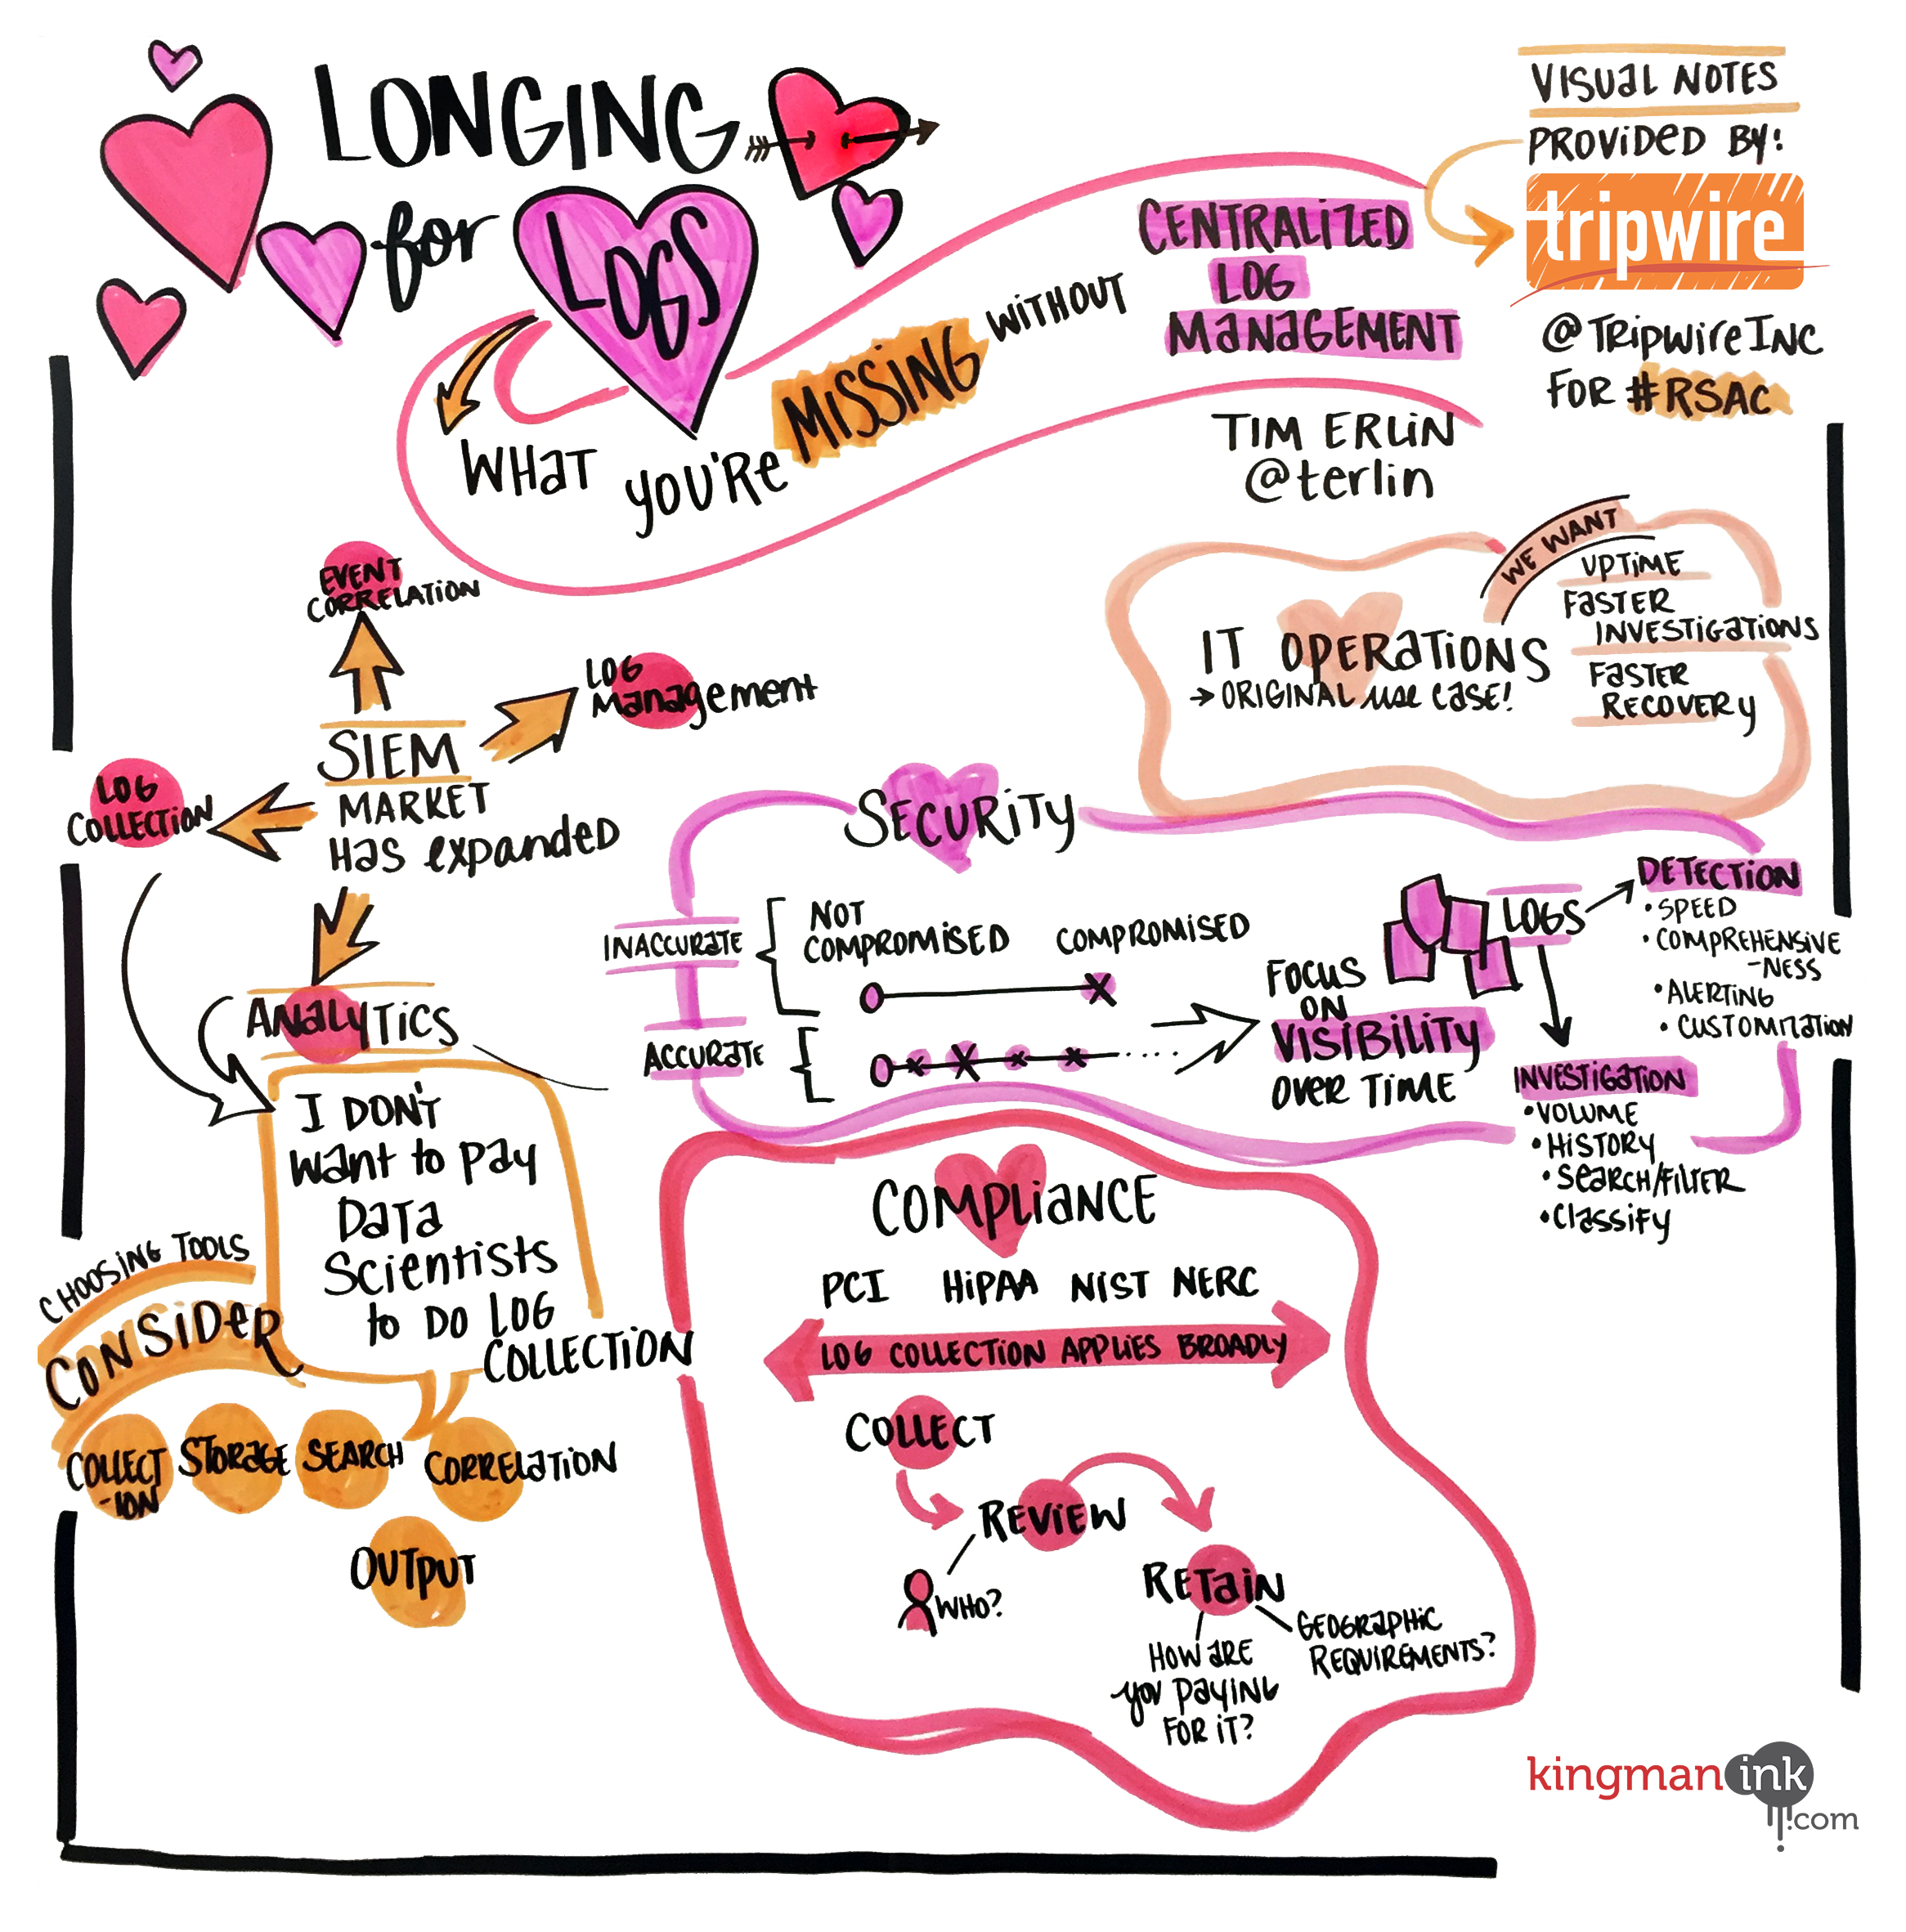 LONGING
for
LOGS
WHAT YOU'RE MISSING WITHOUT
CENTRALIZED
LOG
MANAGEMENT
TIM ERLIN
@terlin
VISUAL NOTES
PROVIDED BY:
tripwire
@TRIPWIRE INC
FOR #RSAC
EVENT
CORRELATION
LOG
Management
SIEM
MARKET
HAS expanded
LOG
COLLECTION
ANALYTICS
I DON'T
Want to pay
Data
Scientists
to DO LOG
COLLECTION
CHOOSING TOOLS
CONSIDER
COLLECT
-ION
STORAGE
SEARCH
CORRELATION
OUTPUT
WE WANT
UPTIME
FASTER
INVESTIGATIONS
FASTER
RECOVERY
IT OPERATIONS
→ ORIGINAL use CASE!
SECURITY
INACCURATE
NOT
COMPROMISED
COMPROMISED
ACCURATE
FOCUS
ON
VISIBILITY
OVER TIME
LOGS
DETECTION
• SPEED
• COMPREHENSIVE
-NESS
• ALERTING
• CUSTOMIZATION
INVESTIGATION
• VOLUME
• HISTORY
• SEARCH/FILTER
• Classify
COMPLIANCE
PCI HIPAA NIST NERC
LOG COLLECTION APPLIES BROADLY
COLLECT
REVIEW
WHO?
RETAIN
HOW ARE
you PAYING
FOR IT?
GEOGRAPHIC
REQUIREMENTS?
kingman ink
.com